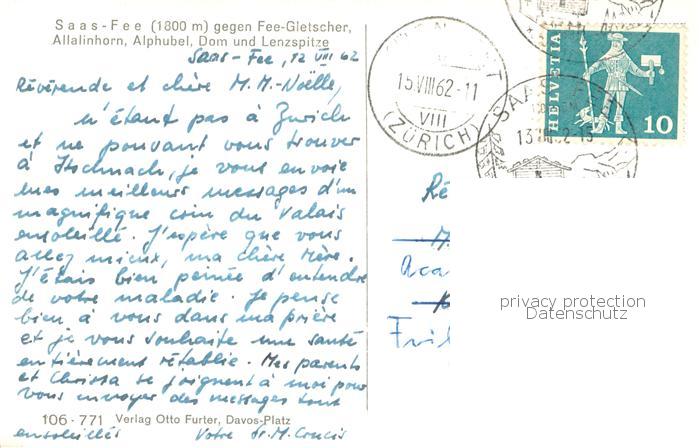 Saas-Fee (1800 m) gegen Fee-Gletscher,
Allalinhorn, Alphubel, Dom und Lenzspitze
Saas-Fee, 12 VIII 62
Révérende et chère M. M.-Noëlle,
n'étant pas à Zurich
et ne pouvant vous trouver
à Itschnach, je vous envoie
mes meilleurs messages d'un
magnifique coin du Valais
ensoleillé. J'espère que vous
allez mieux, ma chère Mère.
J'étais bien peinée d'entendre
de votre maladie. Je pense
bien à vous dans ma prière
et je vous souhaite une santé
entièrement rétablie. Mes parents
et Christa se joignent à moi pour
vous envoyer des messages tout
106-771 Verlag Otto Furter, Davos-Platz
ensoleillés Votre Sr. M. Crucis
15.VIII.62-11
VIII
(ZÜRICH)
SAAS-FEE
HELVETIA
10
Ré
Aca
Frib
privacy protection
Datenschutz